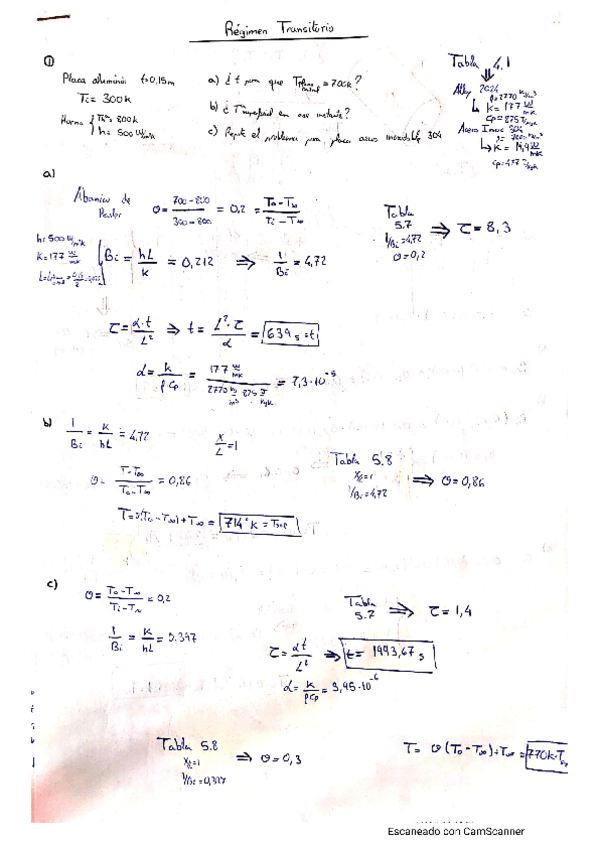 Régimen Transitorio
①
Placa aluminio t=0,15m
Ti = 300k
Horno { T∞ = 800k
h = 500 W/m²k
a) ¿ t para que T = 700k?
b) ¿ T superficial en ese instante?
c) Repite el problema para placa acero inoxidable 304
Tabla 4.1
Alloy 2024
K = 177 W/mk
Cp = 875 J/kgk
Acero Inox 304
K = 14,9 W/mk
Cp = 477 J/kgk
a)
Θ = (700 - 800)/(300 - 800) = 0,2 = (To - T∞)/(Ti - T∞)
Tabla 5.7
1/Bi = 4,72
Θ = 0,2
⇒ τ = 8,3
h = 500 W/m²k
K = 177 W/mk
Bi = hL/k = 0,212 ⇒ 1/Bi = 4,72
τ = α·t/L² ⇒ t = L²·τ/α = 639 s = t
α = k/ρCp = 177 W/mk / (2770 kg/m³ · 875 J/kgk) = 7,3·10⁻⁵
b)
1/Bi = k/hL = 4,72
X/L = 1
Tabla 5.8
X/L = 1
1/Bi = 4,72
⇒ Θ = 0,86
Θ = (T - T∞)/(To - T∞) = 0,86
T = Θ(To - T∞) + T∞ = 714°k = Tsup
c)
Θ = (To - T∞)/(Ti - T∞) = 0,2
Tabla 5.7 ⇒ τ = 1,4
1/Bi = k/hL = 0.397
τ = αt/L² ⇒ t = 1993,67 s
α = k/ρCp = 3,95·10⁻⁶
Tabla 5.8
X/L = 1
1/Bi = 0,397
⇒ Θ = 0,3
T = Θ(To - T∞) + T∞ = 770k = T
Escaneado con CamScanner